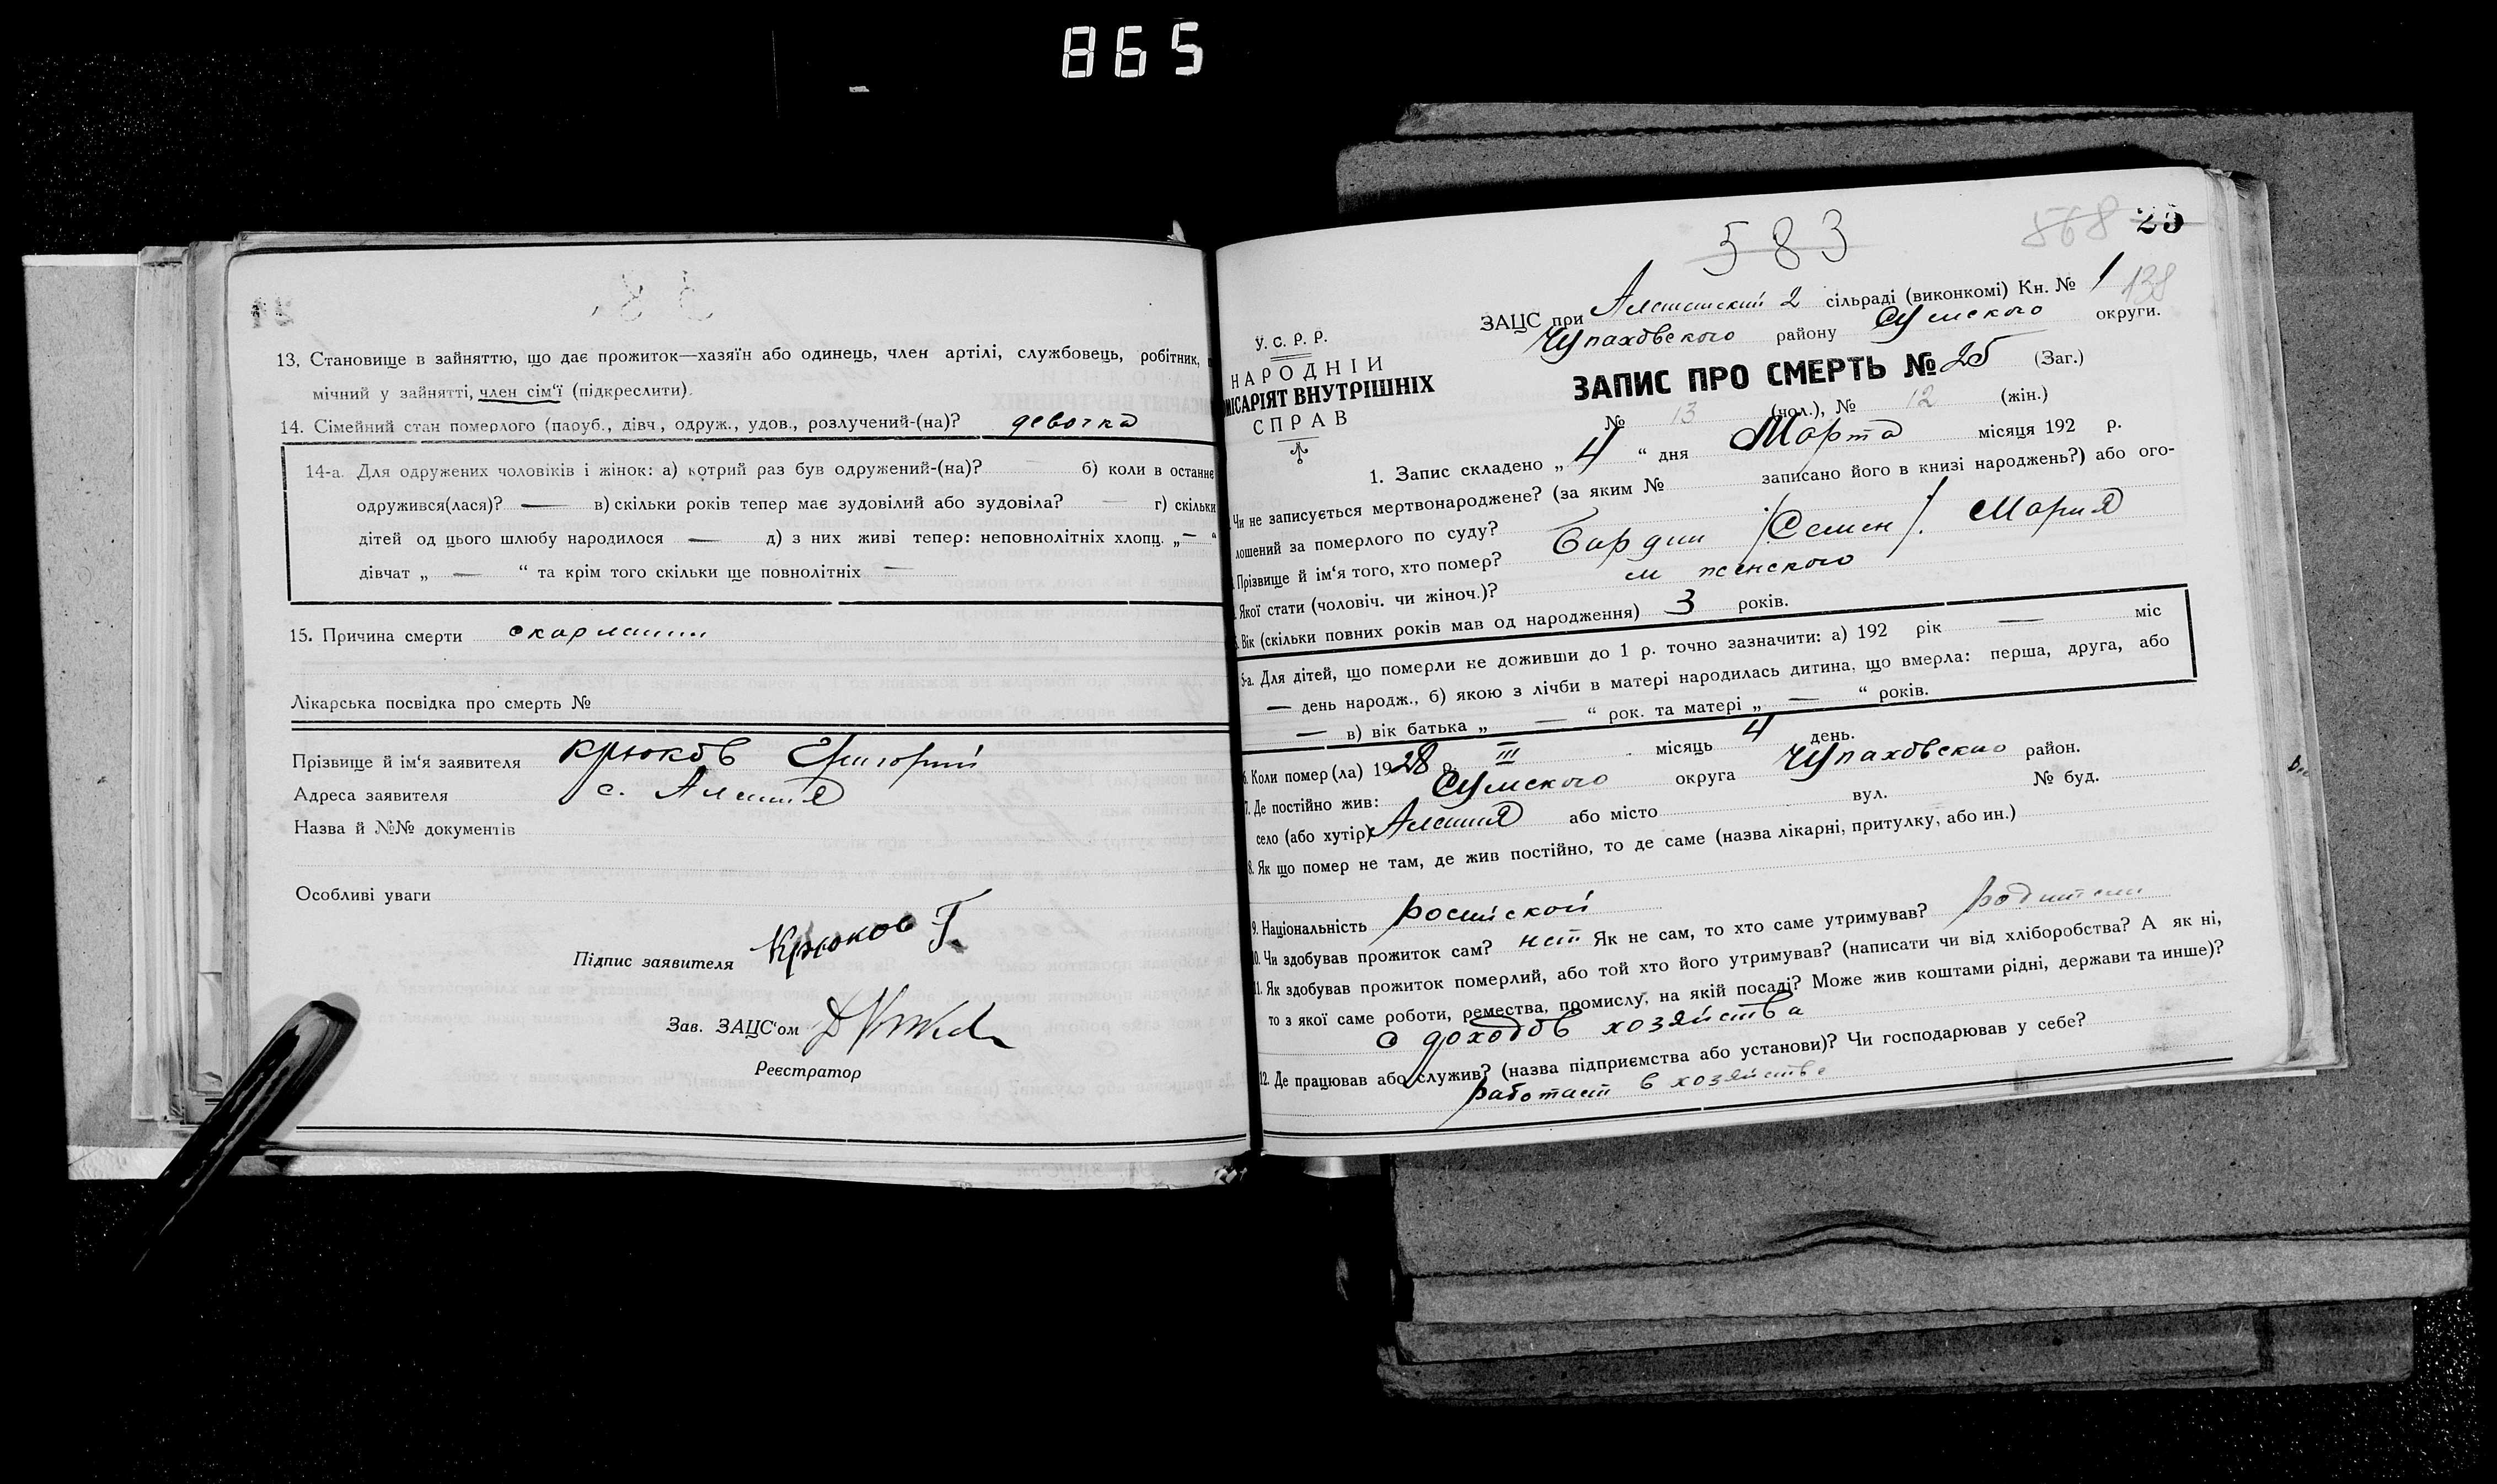 865
13. Становище в зайняттю, що дає прожиток—хазяїн або одинець, член артілі, службовець, робітник,
мічний у зайнятті, член сім'ї (підкреслити).
14. Сімейний стан померлого (паруб., дівч, одруж., удов., розлучений-(на)? девочка
14-а. Для одружених чоловіків і жінок: а) котрий раз був одружений-(на)? — б) коли в останнє
одружився(лася)? — в) скільки років тепер має зудовілий або зудовіла? — г) скільки
дітей од цього шлюбу народилося — д) з них живі тепер: неповнолітніх хлопц. „—“
дівчат „ — “ та крім того скільки ще повнолітніх —
15. Причина смерти скарлатин
Лікарська посвідка про смерть №
Прізвище й ім'я заявителя Крюков Григорий
Адреса заявителя с. Алешня
Назва й №№ документів
Особливі уваги
Підпис заявителя Крюков Г.
Зав. ЗАЦС'ом
Реєстратор
583 568 25
ЗАЦС при 2 сільраді (виконкомі) Кн. № 1 138
Чупаховського району Сумского округи.
У. С. Р. Р.
НАРОДНІЙ
МІСАРІЯТ ВНУТРІШНІХ
СПРАВ
ЗАПИС ПРО СМЕРТЬ № 25 (Заг.)
№ 13 (чол.), № 12 (жін.)
1. Запис складено „ 4 “ дня Марта місяця 192 р.
Чи не записується мертвонароджене? (за яким № записано його в книзі народжень?) або ого-
лошений за померлого по суду?
Прізвище й ім'я того, хто помер? Бардин /Семен/. Мария
Якої стати (чоловіч. чи жіноч.)? женского
Вік (скільки повних років мав од народження) 3 років.
5-а. Для дітей, що померли не доживши до 1 р. точно зазначити: а) 192 рік — міс
— день народж., б) якою з лічби в матері народилась дитина, що вмерла: перша, друга, або
— в) вік батька „ — “ рок. та матері „ — “ років.
6. Коли помер(ла) 1928 р. III місяць 4 день.
7. Де постійно жив: Сумского округа Чупаховского район.
село (або хутір) Алешня або місто вул. № буд.
8. Як що помер не там, де жив постійно, то де саме (назва лікарні, притулку, або ин.)
9. Національність росийской
10. Чи здобував прожиток сам? нет Як не сам, то хто саме утримував? родители
11. Як здобував прожиток померлий, або той хто його утримував? (написати чи від хліборобства? А як ні,
то з якої саме роботи, ремества, промислу, на якій посаді? Може жив коштами рідні, держави та инше)?
с доходов хозяйства
12. Де працював або служив? (назва підприємства або установи)? Чи господарював у себе?
работает в хозяйстве